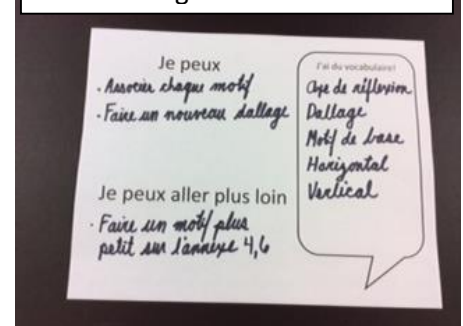 Je peux
• Associer chaque motif
• Faire un nouveau dallage
Je peux aller plus loin
• Faire un motif plus
petit sur l'annexe 4,6
J'ai du vocabulaire!
Axe de réflexion
Dallage
Motif de base
Horizontal
Vertical